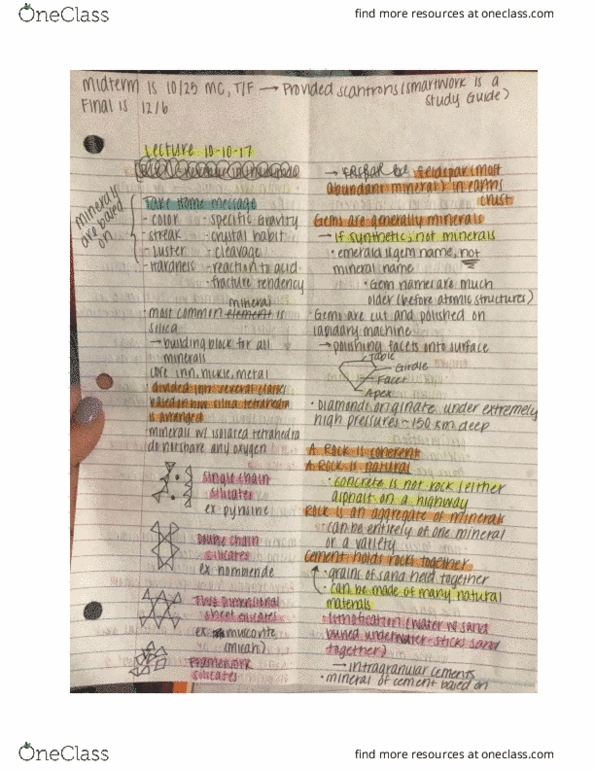 OneClass
find more resources at oneclass.com
Midterm is 10/25 MC, T/F → Provided scantrons (smartwork is a
study Guide)
Final is 12/6
Lecture 10-10-17
minerals
are based
on
Take Home message
- color
- streak
- luster
- Hardness
- specific Gravity
- crystal habit
- cleavage
- reaction to acid
- fracture tendency
mineral
· most common element is
silica
→ building block for all
minerals
core iron, nickle, metal
· divided into several classes
based on how silica tetrahedra
is arranged
minerals w/ isolated tetrahedra
do not share any oxygen
single chain
silicates
ex pyroxine
Double chain
silicates
ex
Two Dimensional
sheet silicates
ex
Framework
silicates
→ feldspar (most
abundant mineral) in earths
crust
Gems are generally minerals
→ if synthetic, not minerals
· emerald is gem name, not
mineral name
· Gem names are much
older (before atomic structures)
· Gems are cut and polished on
lapidary machine
→ polishing facets onto surface
Table
Girdle
Facet
Apex
· Diamonds originate under extremely
high pressures ~ 150 km deep
A Rock is coherent
A Rock is natural
· concrete is not rock (either
asphalt on a highway
Rock is an aggregate of minerals
· can be entirely of one mineral
or a variety
Cement holds rocks together
· grains of sand held together
· can be made of many natural
materials
lithification (water w/ sand
buried underwater - sticks sand
together)
→ intragranular cements
· mineral of cement based on
OneClass
find more resources at oneclass.com